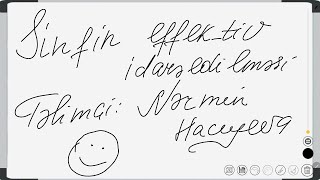 Sinfin effektiv
idarə edilməsi
Təlimçi: Nərmin
Hacıyeva